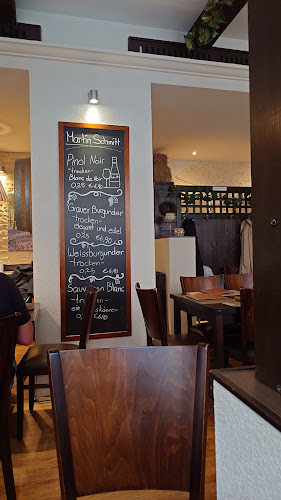 Martin Schmitt
Pinot Noir
-trocken-
Blanc de
0,25 €6,90
Grauer Burgunder
-trocken-
elegant und edel
0,25 €6,90
Weissburgunder
-trocken-
0,25 €6,90
Blanc
-trocken-
ein
€6,90